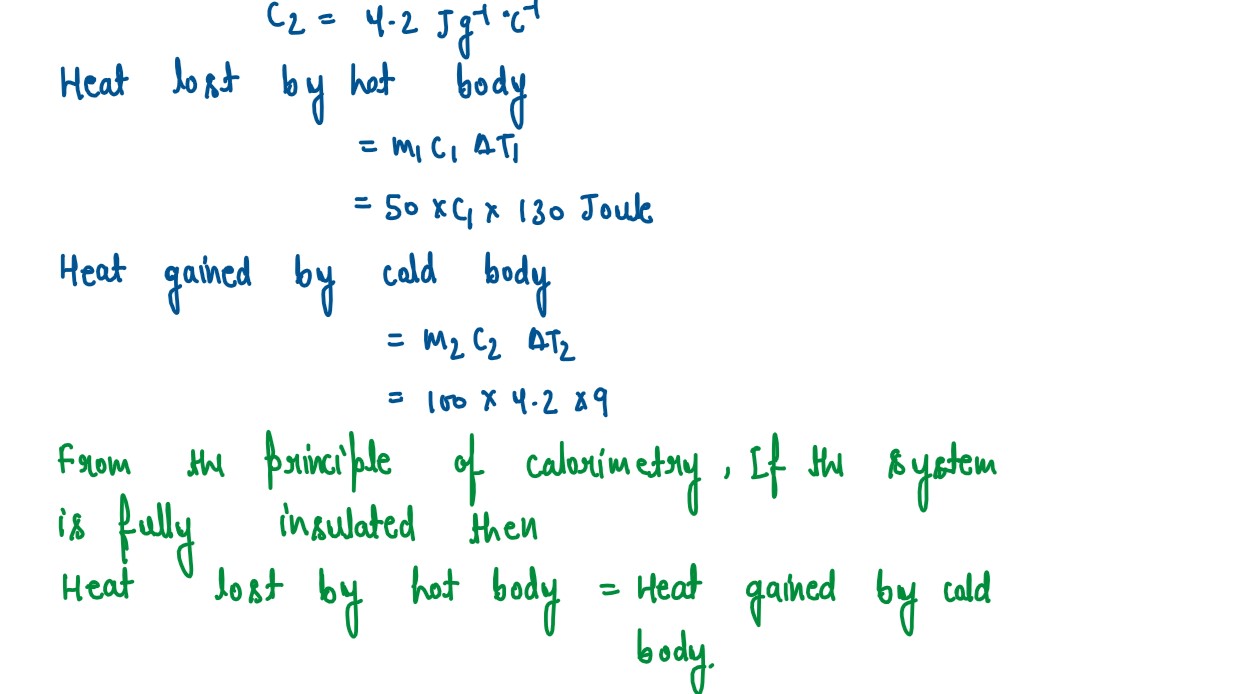 C2 = 4.2 J g⁻¹ °C⁻¹
Heat lost by hot body
= m₁ C₁ ΔT₁
= 50 × C₁ × 130 Joule
Heat gained by cold body
= m₂ C₂ ΔT₂
= 100 × 4.2 × 9
From the principle of calorimetry, If the system
is fully insulated then
Heat lost by hot body = Heat gained by cold
body.